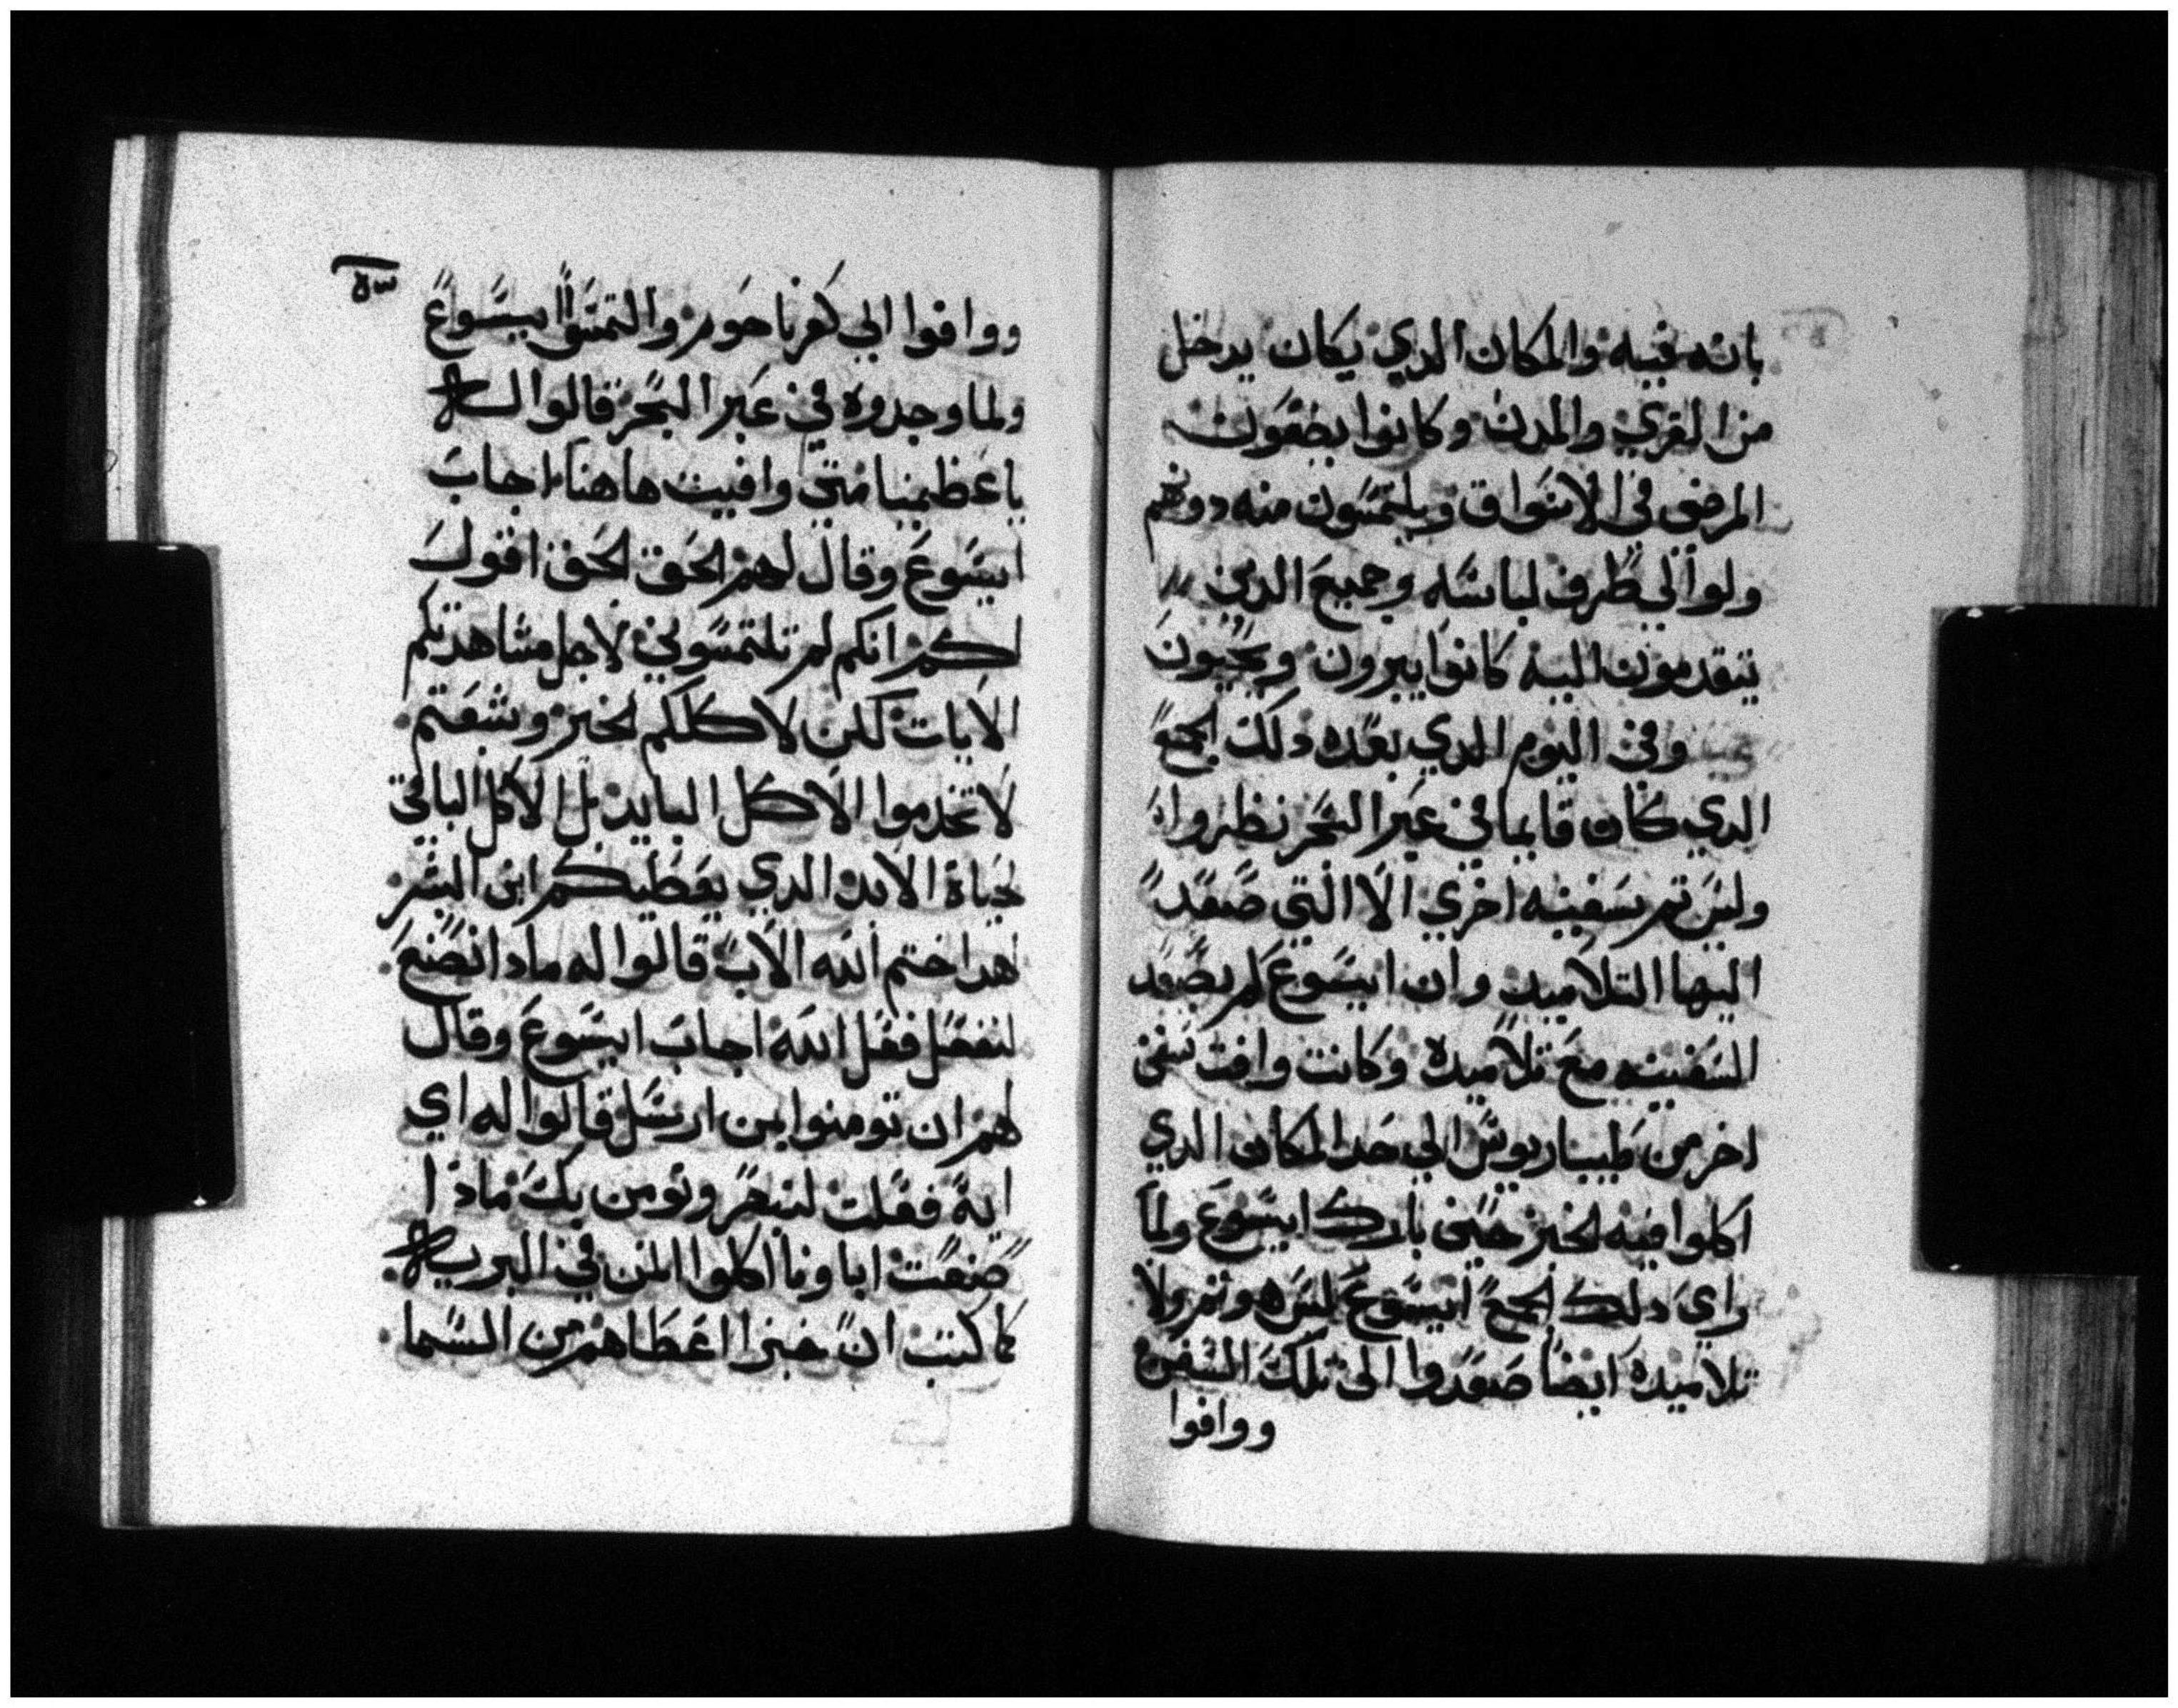 بانه فيه والمكان الدي يكان يدخل
من القري والمدن وكانوا يضعون
المرضى في الاسواق ويلتمسون منه دونهم
ولو الي طرف لباسه وجميع الدين
يتقدمون اليه كانوا يبرون ويحيون
وفي اليوم الدي بعده دلك الجمع
الدي كان قايما في عبر البحر نظروا انه
وليس تم سفينه اخري الا التي صعد
اليها التلاميد وان ايسوع لم يصعد
السفينه مع تلاميده وكانت وافت سفن
اخر من طيباريوس الي حد المكان الدي
اكلوا فيه الخبز حين بارك ايسوع ولما
راي دلك الجمع ايسوع ليس هو تم ولا
تلاميده ايضا صعدوا الى تلك السفن
ووافوا
ووافوا الي كفرناحوم والتمسوا ايسوع
ولما وجدوه في عبر البحر قالوا له
يا عظيمنا متي وافيت هاهنا اجاب
ايسوع وقال لهم الحق الحق اقول
لكم انكم لم تلتمسوني لاجل مشاهدتكم
الايات لكن لاكلكم الخبز وشبعتم
لا تخدموا الاكل البايد بل الاكل الباقي
لحياة الابد الدي يعطيكم ابن البشر
هدا ختم الله الاب قالوا له مادا نصنع
لنفعل فعل الله اجاب ايسوع وقال
لهم ان تومنوا بمن ارسل قالوا له اي
اية فعلت لنبصر ونومن بك مادا
صنعت اباونا اكلوا المن في البريه
كما كتب ان خبزا اعطاهم من السما